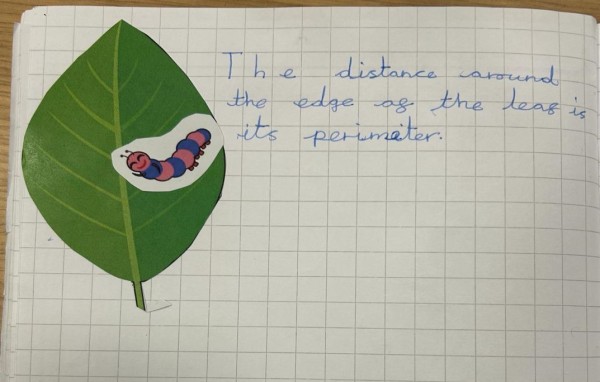 The distance around
the edge of the leaf is
its perimeter.